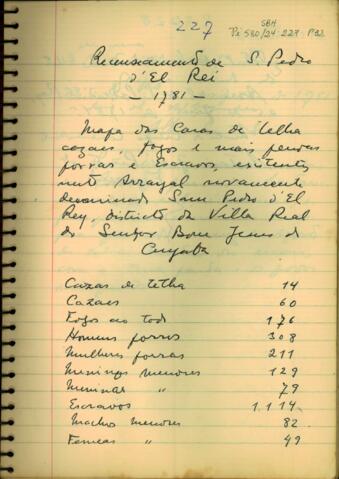 227
SBH
Pi 580/24 227 P22
Recenseamento de S. Pedro
d'El Rei
— 1781 —
Mapa das Casas de telha
cazaes, fogos e mais pessoas
forras e Escravos, existentes
neste Arrayal novamente
denominado Sam Pedro d'El
Rey, districto da Villa Real
do Senhor Bom Jesus do
Cuyaba
Cazas de telha 14
Cazaes 60
Fogos ao todo 176
Homens forros 308
Mulheres forras 211
Meninos menores 129
Meninas " 79
Escravos 1.114
Machos menores 82
Femeas " 49